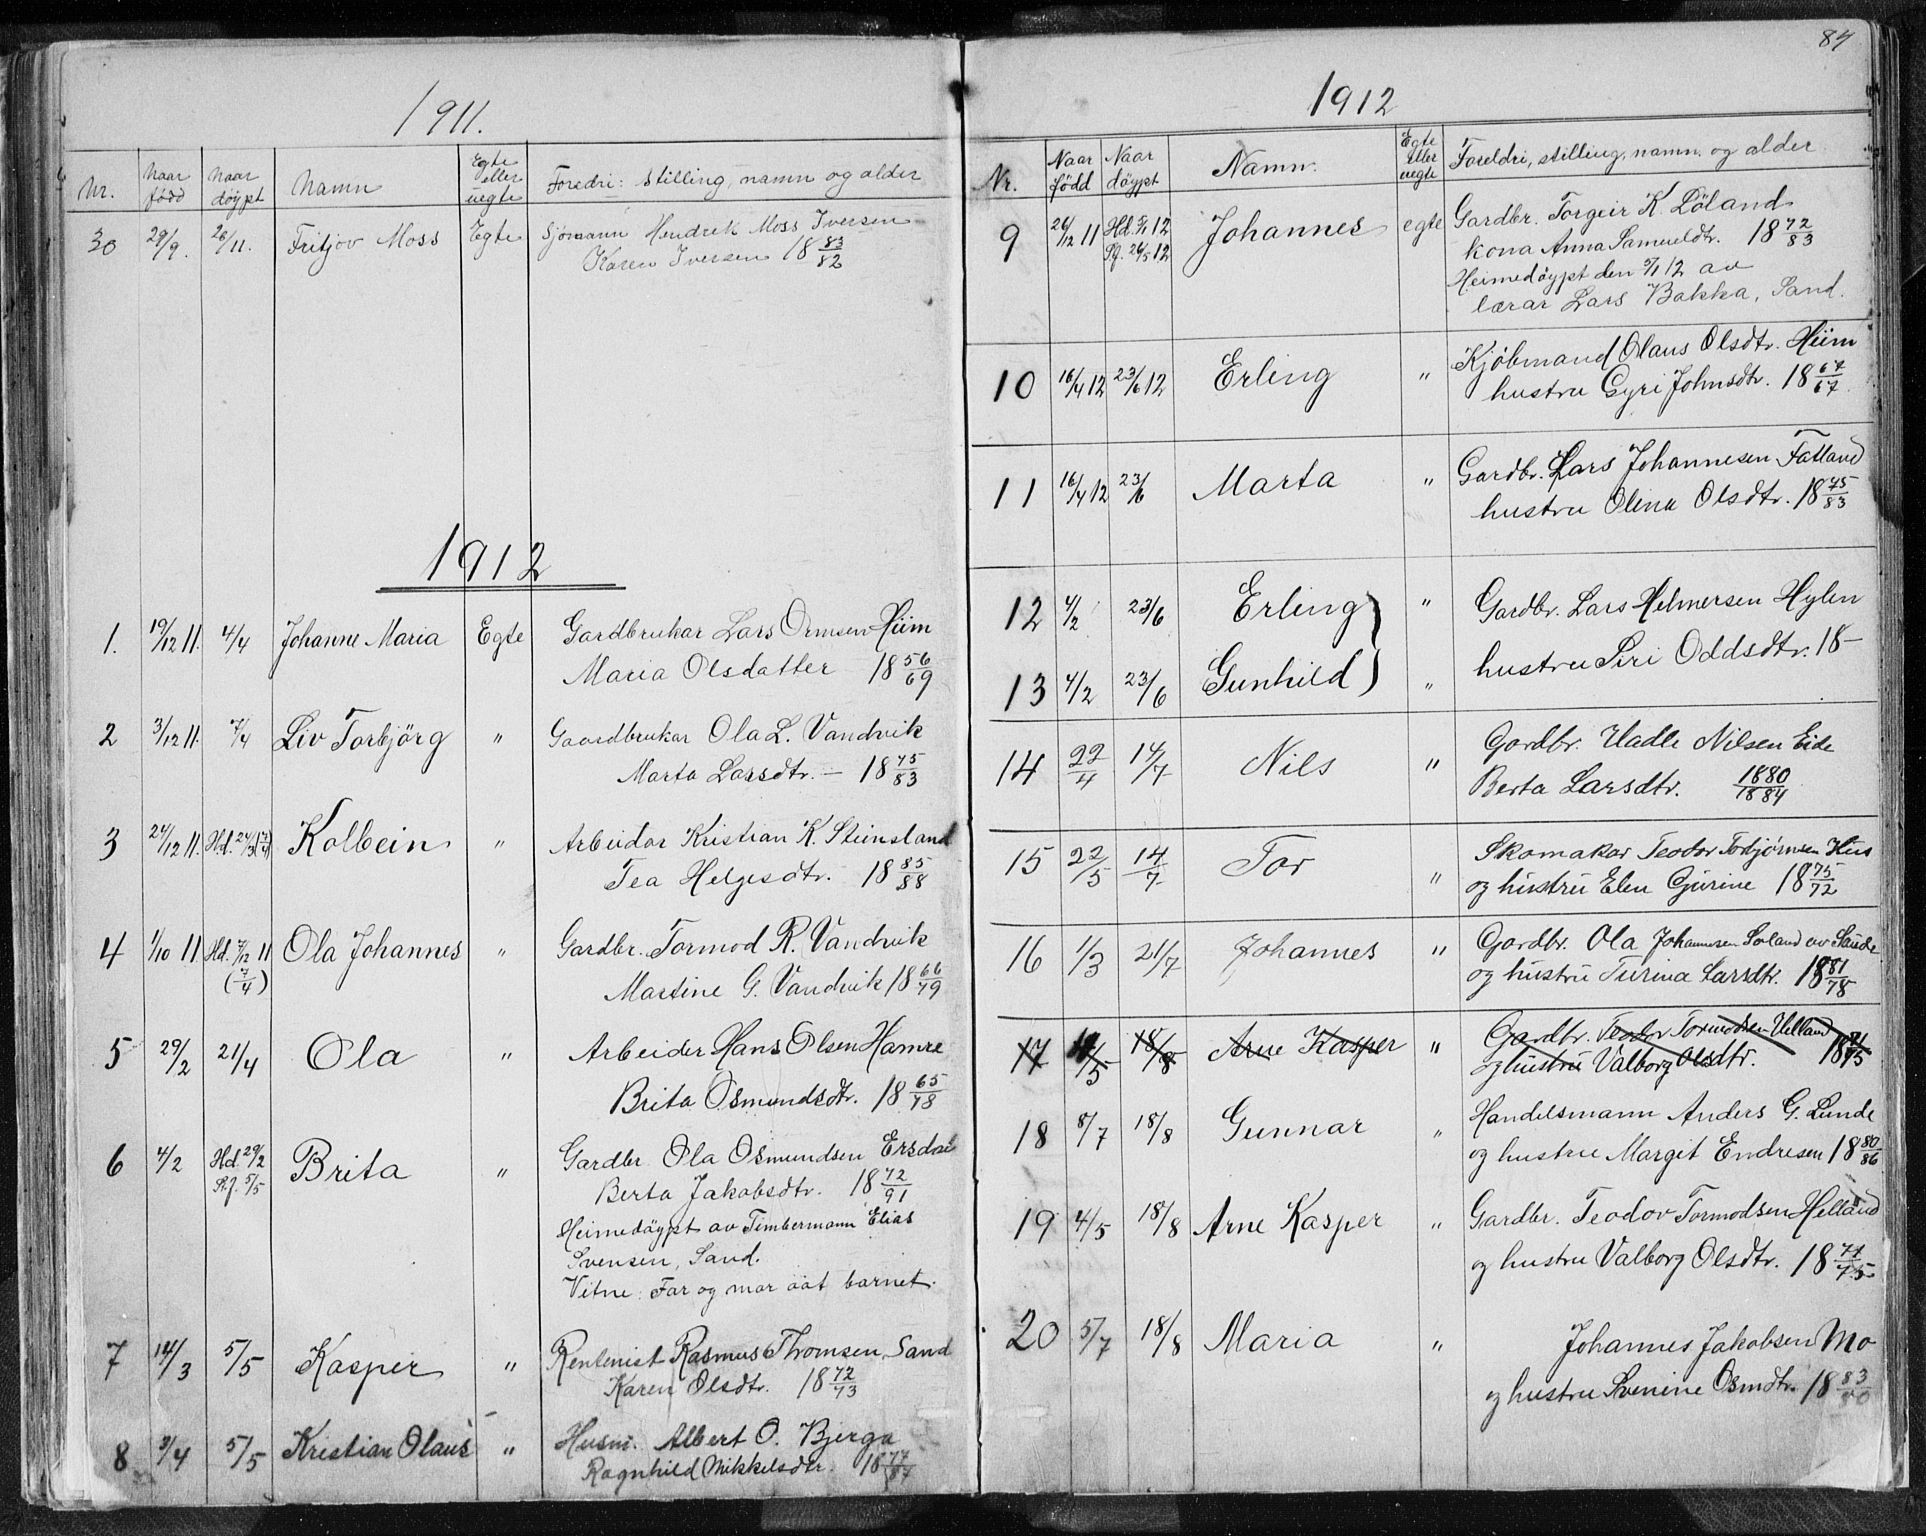 1911.
Nr. Naar fødd Naar döypt Namn Egte eller uegte Foredri: stilling, namn og alder
30 29/9. 26/11. Fritjov Moss Egte Sjömann Hendrek Moss Iversen
Karen Iversen 18 83/82
1912
1. 19/12 11. 4/4 Johanne Maria Egte Gardbrukar Lars Ormsen Hiim
Maria Olsdatter 18 56/69
2 3/12 11. 7/4 Liv Torbjörg " Gaardbrukar Ola L. Vandvik
Marta Larsdtr. – 18 75/83
3 24/12 11. Hd. 24/3 (7/4) Kolbein " Arbeidar Kristian K. Steinsland
Tea Helgesdtr. 18 85/88
4 1/10 11. Hd. 7/12 11 (7/4) Ola Johannes " Gardbr. Tormod R. Vandvik
Martine G. Vandvik 18 66/79
5 29/2 21/4 Ola " Arbeider Hans Olsen Hamre
Brita Osmundsdtr. 18 65/78
6 4/2 Hd. 29/2 St.f. 5/5 Brita " Gardbr. Ola Osmundsen Ersdal
Berta Jakobsdtr. 18 72/91
Heimedöypt av Timbermann Elias
Svensen, Sand.
Vitne: Far og mor aat barnet.
7 14/3 5/5 Kasper " Rentenist Rasmus Thomsen, Sand
Karen Olsdtr. 18 72/73
8 3/4 5/5 Kristian Olaus " Husm. Albert O. Bjerga
Ragnhild Mikkelsdtr. 18 77/87
84
1912
Nr. Naar född Naar döypt Namn. Egte eller uegte Foreldri, stilling, namn og alder
9 26/12 11 Hd. 5/1 12 26/5 12 Johannes egte Gardbr. Torgeir K. Löland
kona Anna Samueldtr. 18 72/83
Heimedöypt den 5/1 12 av
lærar Lars Bakka, Sand.
10 16/4 12 23/6 12 Erling " Kjöbmand Olaus Olsdtr. Hiim
hustru Gyri Johnsdtr. 18 67/67
11 16/4 12 23/6 Marta " Gardbr. Lars Johannesen Fatland
hustru Olina Olsdtr. 18 75/83
12 4/2 23/6 Erling } " Gardbr. Lars Helmersen Hylen
13 4/2 23/6 Gunhild } " hustru Siri Oddsdtr. 18–
14 22/4 14/7 Nils " Gardbr. Hadle Nilsen Eide
Berta Larsdtr. 1880/1884
15 22/5 14/7 Tor " Skomakar Teodor Torbjörnsen Hus
og hustru Elen Gurine 18 75/72
16 1/3 21/7 Johannes " Gardbr. Ola Johannesen Soland av Saude
og hustru Turina Larsdtr. 18 81/78
17 4/5 18/8 Arne Kasper " Gardbr. Teodor Tormodsen Helland
og hustru Valborg Olsdtr. 18 71/75
18 8/7 18/8 Gunnar " Handelsmann Anders G. Lunde
og hustru Margit Endresen 18 80/86
19 4/5 18/8 Arne Kasper " Gardbr. Teodor Tormodsen Helland
og hustru Valborg Olsdtr. 18 71/75
20 5/7 18/8 Maria " Johannes Jakobsen Mo
og hustru Svenine Osmdtr. 18 83/80